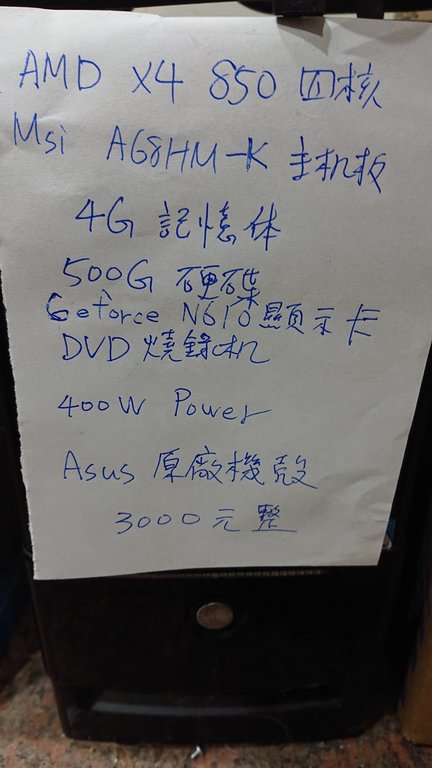 AMD X4 850 四核
Msi A68HM-K 主机板
4G 記憶体
500G 硬碟
Geforce N610 顯示卡
DVD 燒錄机
400W Power
Asus 原廠機殼
3000元整